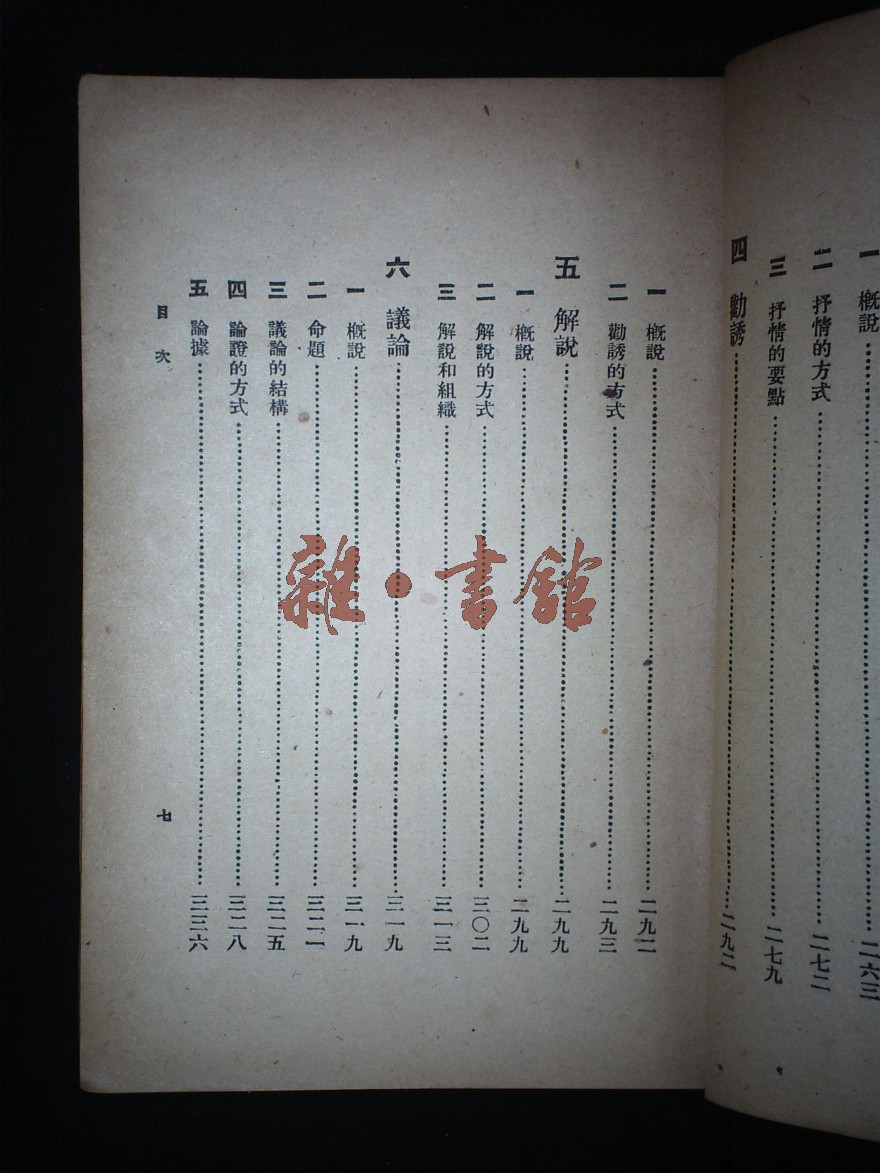 一 概說……二六三
二 抒情的方式……二七二
三 抒情的要點……二七九
四 勸誘……二九二
一 概說……二九二
二 勸誘的方式……二九三
五 解說……二九九
一 概說……二九九
二 解說的方式……三〇二
三 解說和組織……三一三
六 議論……三一九
一 概說……三一九
二 命題……三二一
三 議論的結構……三二五
四 論證的方式……三二八
五 論據……三三六
目次 七
雜·書館